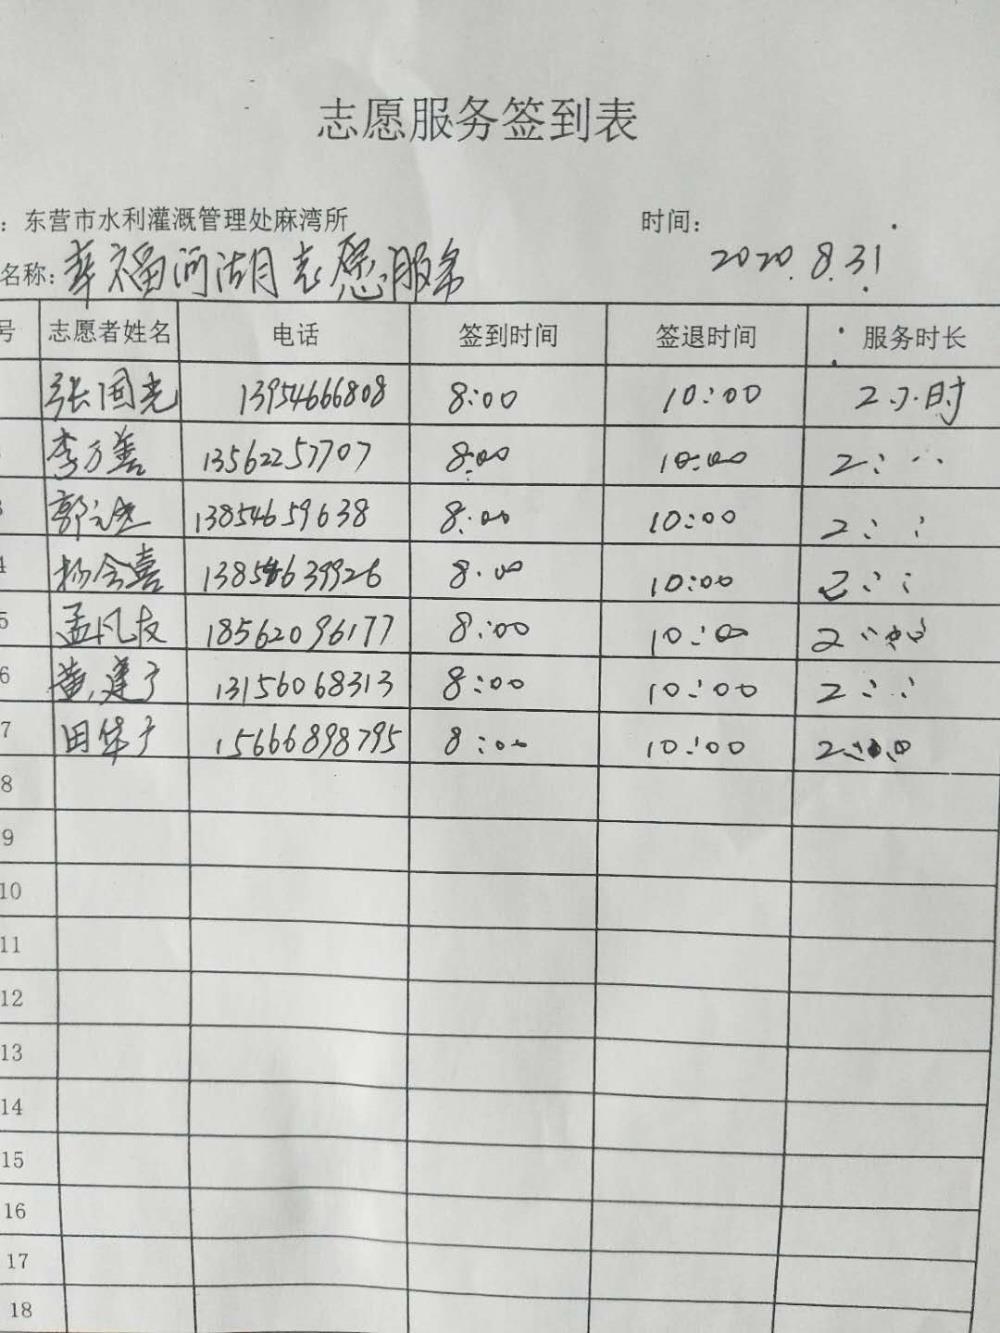 志愿服务签到表
：东营市水利灌溉管理处麻湾所 时间：
名称：幸福河湖志愿服务 2020.8.31
号 志愿者姓名 电话 签到时间 签退时间 服务时长
张国光 13954666808 8:00 10:00 2小时
李万善 13562257707 8:00 10:00 2
3 郭 13854659638 8:00 10:00 2
4 杨会喜 13854639926 8:00 10:00 2
5 孟凡友 18562096177 8:00 10:00 2
6 黄建 13156068313 8:00 10:00 2
7 田华 15666898795 8:00 10:00 2
8
9
10
11
12
13
14
15
16
17
18